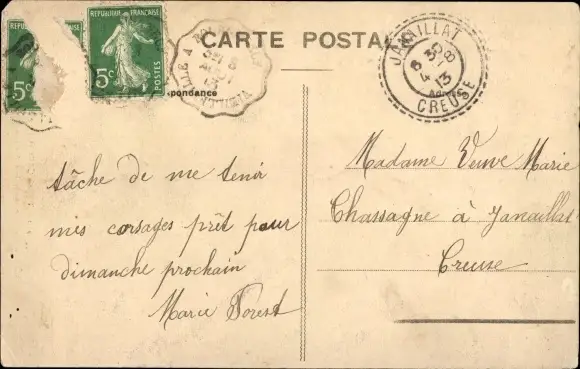 REPUBLIQUE FRANÇAISE
5c
POSTES
REPUBLIQUE FRANÇAISE
5c
CARTE POSTA
pondance
JANAILLAT
13
CREUSE
tâche de me tenir
mes corsages prêt pour
dimanche prochain
Marie Forest
Madame Veuve Marie
Chassagne à Janaillat
Creuse